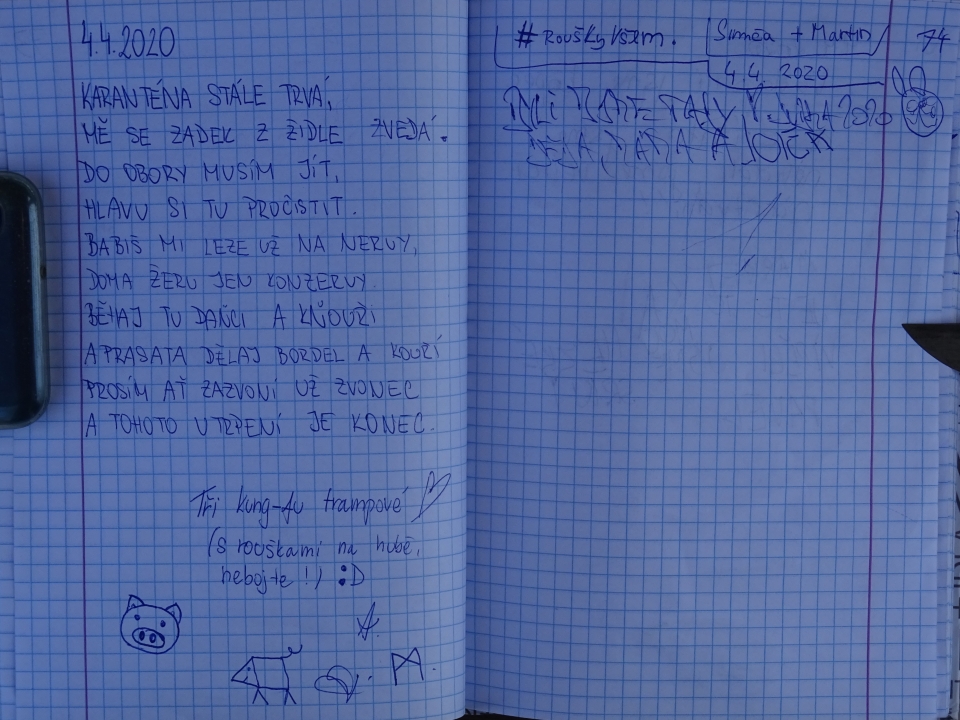 4.4.2020
KARANTÉNA STÁLE TRVÁ,
MĚ SE ZADEK Z ŽIDLE ZVEDÁ.
DO OBORY MUSÍM JÍT,
HLAVU SI TU PROČISTIT.
BABIŠ MI LEZE UŽ NA NERVY,
DOMA ŽERU JEN KONZERVY
BĚHAJ TU DAŇCI A KŇOUŘI
A PRASATA DĚLAJ BORDEL A KOUŘÍ
PROSÍM AŤ ZAZVONÍ UŽ ZVONEC
A TOHOTO UTRPENÍ JE KONEC.
Tři kung-fu trampové
(s rouškami na hubě,
nebojte!) :D
A.
M.
#ROUŠKYVŠEM. Simča + Martin 74
4.4. 2020
BYLI JSME TADY